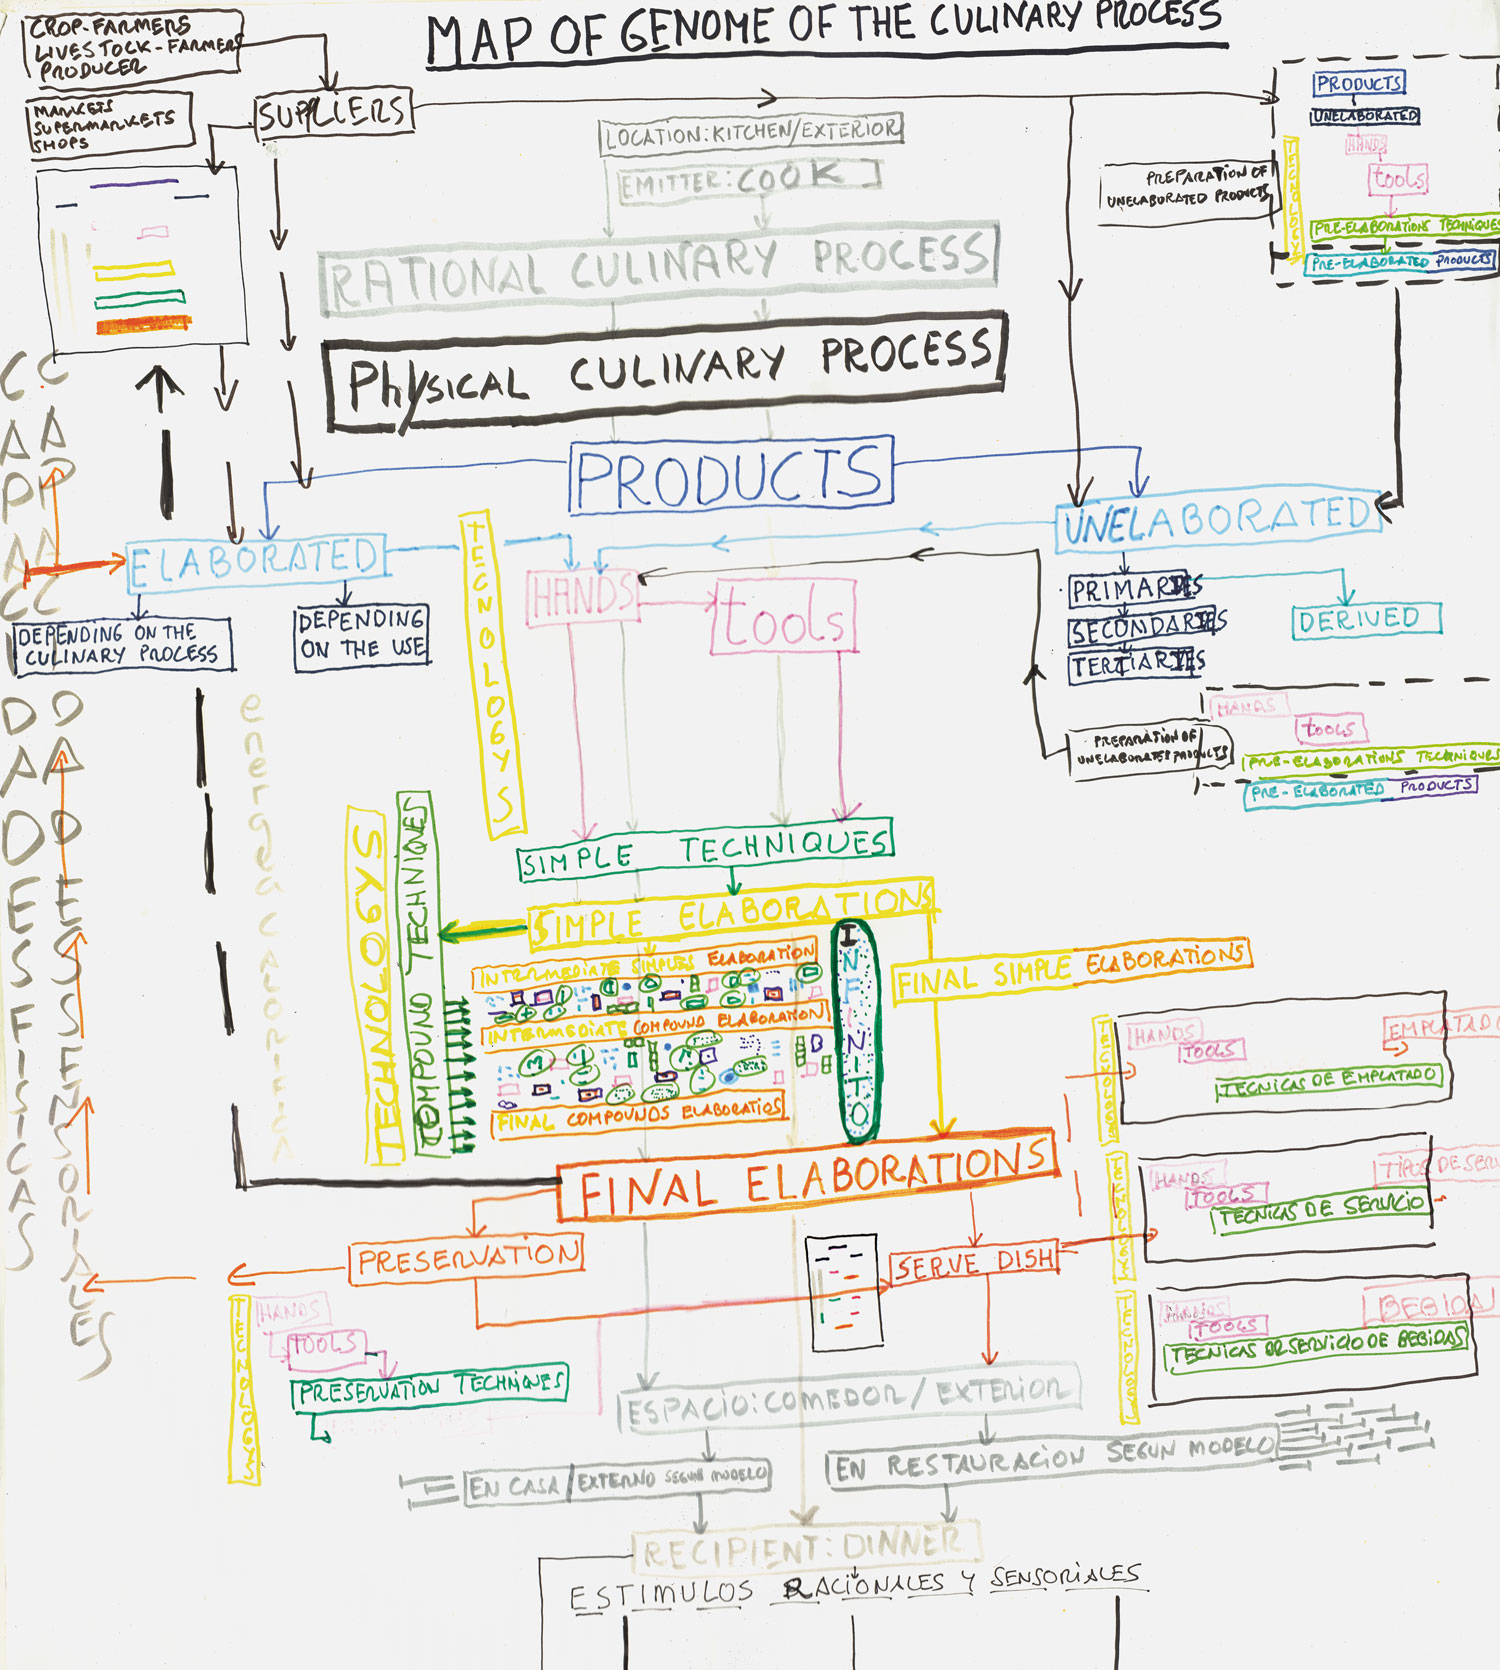 MAP OF GENOME OF THE CULINARY PROCESS
CROP-FARMERS
LIVESTOCK-FARMERS
PRODUCER
MARKETS
SUPERMARKETS
SHOPS
SUPPLIERS
LOCATION: KITCHEN/EXTERIOR
EMITTER: COOK
RATIONAL CULINARY PROCESS
PHYSICAL CULINARY PROCESS
PRODUCTS
UNELABORATED
HANDS
tools
TECNOLOGY
PRE-ELABORATIONS TECHNIQUES
PRE-ELABORATED PRODUCTS
PREPARATION OF
UNELABORATED PRODUCTS
PRODUCTS
ELABORATED
UNELABORATED
DEPENDING ON THE
CULINARY PROCESS
DEPENDING
ON THE USE
TECNOLOGYS
HANDS
tools
PRIMARIES
SECONDARIES
TERTIARIES
DERIVED
PREPARATION OF
UNELABORATED PRODUCTS
HANDS
tools
PRE-ELABORATIONS TECHNIQUES
PRE-ELABORATED PRODUCTS
CAPACIDADES FISICAS
CAPACIDADES SENSORIALES
energea CALORIFICA
SIMPLE TECHNIQUES
SIMPLE ELABORATIONS
TECHNOLOGYS
COMPOUND TECHNIQUES
INTERMEDIATE SIMPLES ELABORATION
INTERMEDIATE COMPOUND ELABORATION
FINAL COMPOUNDS ELABORATIOS
INFINITO
FINAL SIMPLE ELABORATIONS
FINAL ELABORATIONS
HANDS
TOOLS
EMPLATADO
TECNICAS DE EMPLATADO
HANDS
TOOLS
TIPOS DE SERV
TECNICAS DE SERVICIO
HANDS
TOOLS
BEBIDA
TECNICAS DE SERVICIO DE BEBIDAS
PRESERVATION
SERVE DISH
HANDS
TOOLS
PRESERVATION TECHNIQUES
ESPACIO: COMEDOR/EXTERIOR
EN CASA/EXTERNO SEGUN MODELO
EN RESTAURACION SEGUN MODELO
RECIPIENT: DINNER
ESTIMULOS RACIONALES Y SENSORIALES